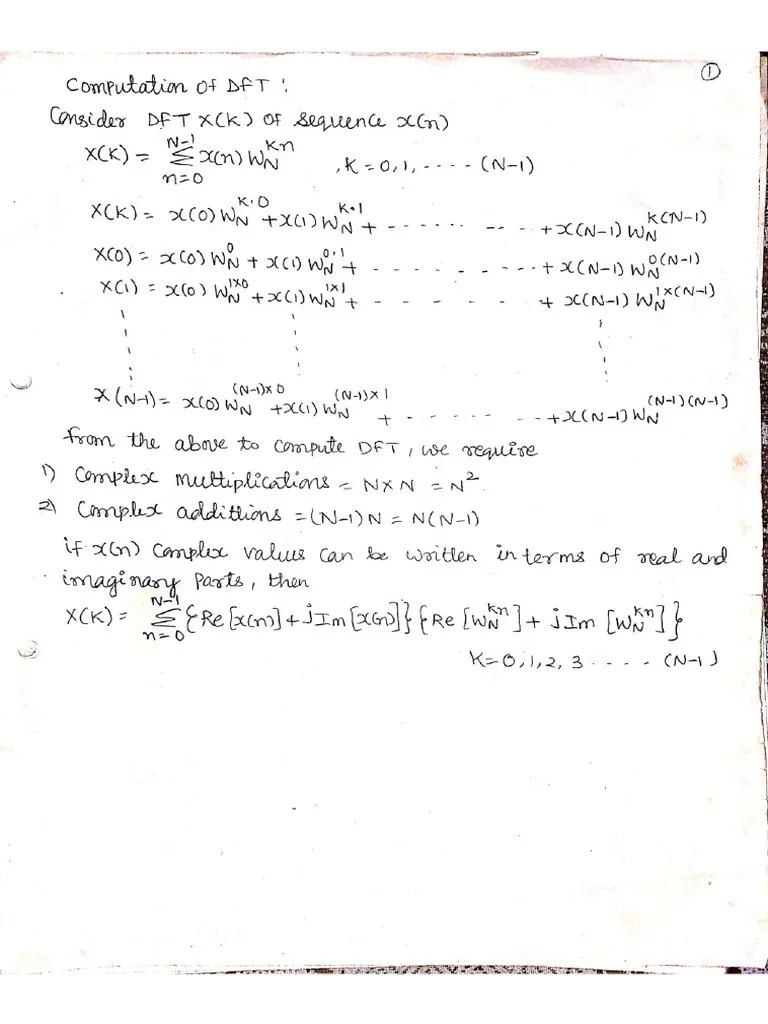 ①
Computation of DFT :
Consider DFT X(K) of sequence x(n)
X(K) = Σ_{n=0}^{N-1} x(n) W_N^{Kn} , K = 0, 1, ---- (N-1)
X(K) = x(0) W_N^{K·0} + x(1) W_N^{K·1} + - - - - - - - - - + x(N-1) W_N^{K(N-1)}
X(0) = x(0) W_N^{0} + x(1) W_N^{0·1} + - - - - - - - - - + x(N-1) W_N^{0(N-1)}
X(1) = x(0) W_N^{1×0} + x(1) W_N^{1×1} + - - - - - - - + x(N-1) W_N^{1×(N-1)}
X(N-1) = x(0) W_N^{(N-1)×0} + x(1) W_N^{(N-1)×1} + - - - - - - - - + x(N-1) W_N^{(N-1)(N-1)}
from the above to compute DFT, we require
1) Complex multiplications = N×N = N²
2) Complex addittions = (N-1)N = N(N-1)
if x(n) complex values can be written in terms of real and
imaginary parts, then
X(K) = Σ_{n=0}^{N-1} {Re[x(n)] + jIm[x(n)]} {Re [W_N^{kn}] + j Im [W_N^{kn}]}
K = 0, 1, 2, 3 ---- (N-1)